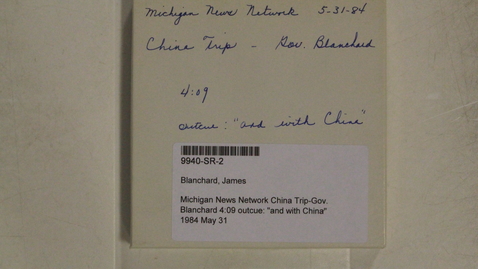 Michigan News Network 5-31-84
China Trip - Gov. Blanchard
4:09
outcue: "and with China"
9940-SR-2
Blanchard, James
Michigan News Network China Trip-Gov.
Blanchard 4:09 outcue: "and with China"
1984 May 31